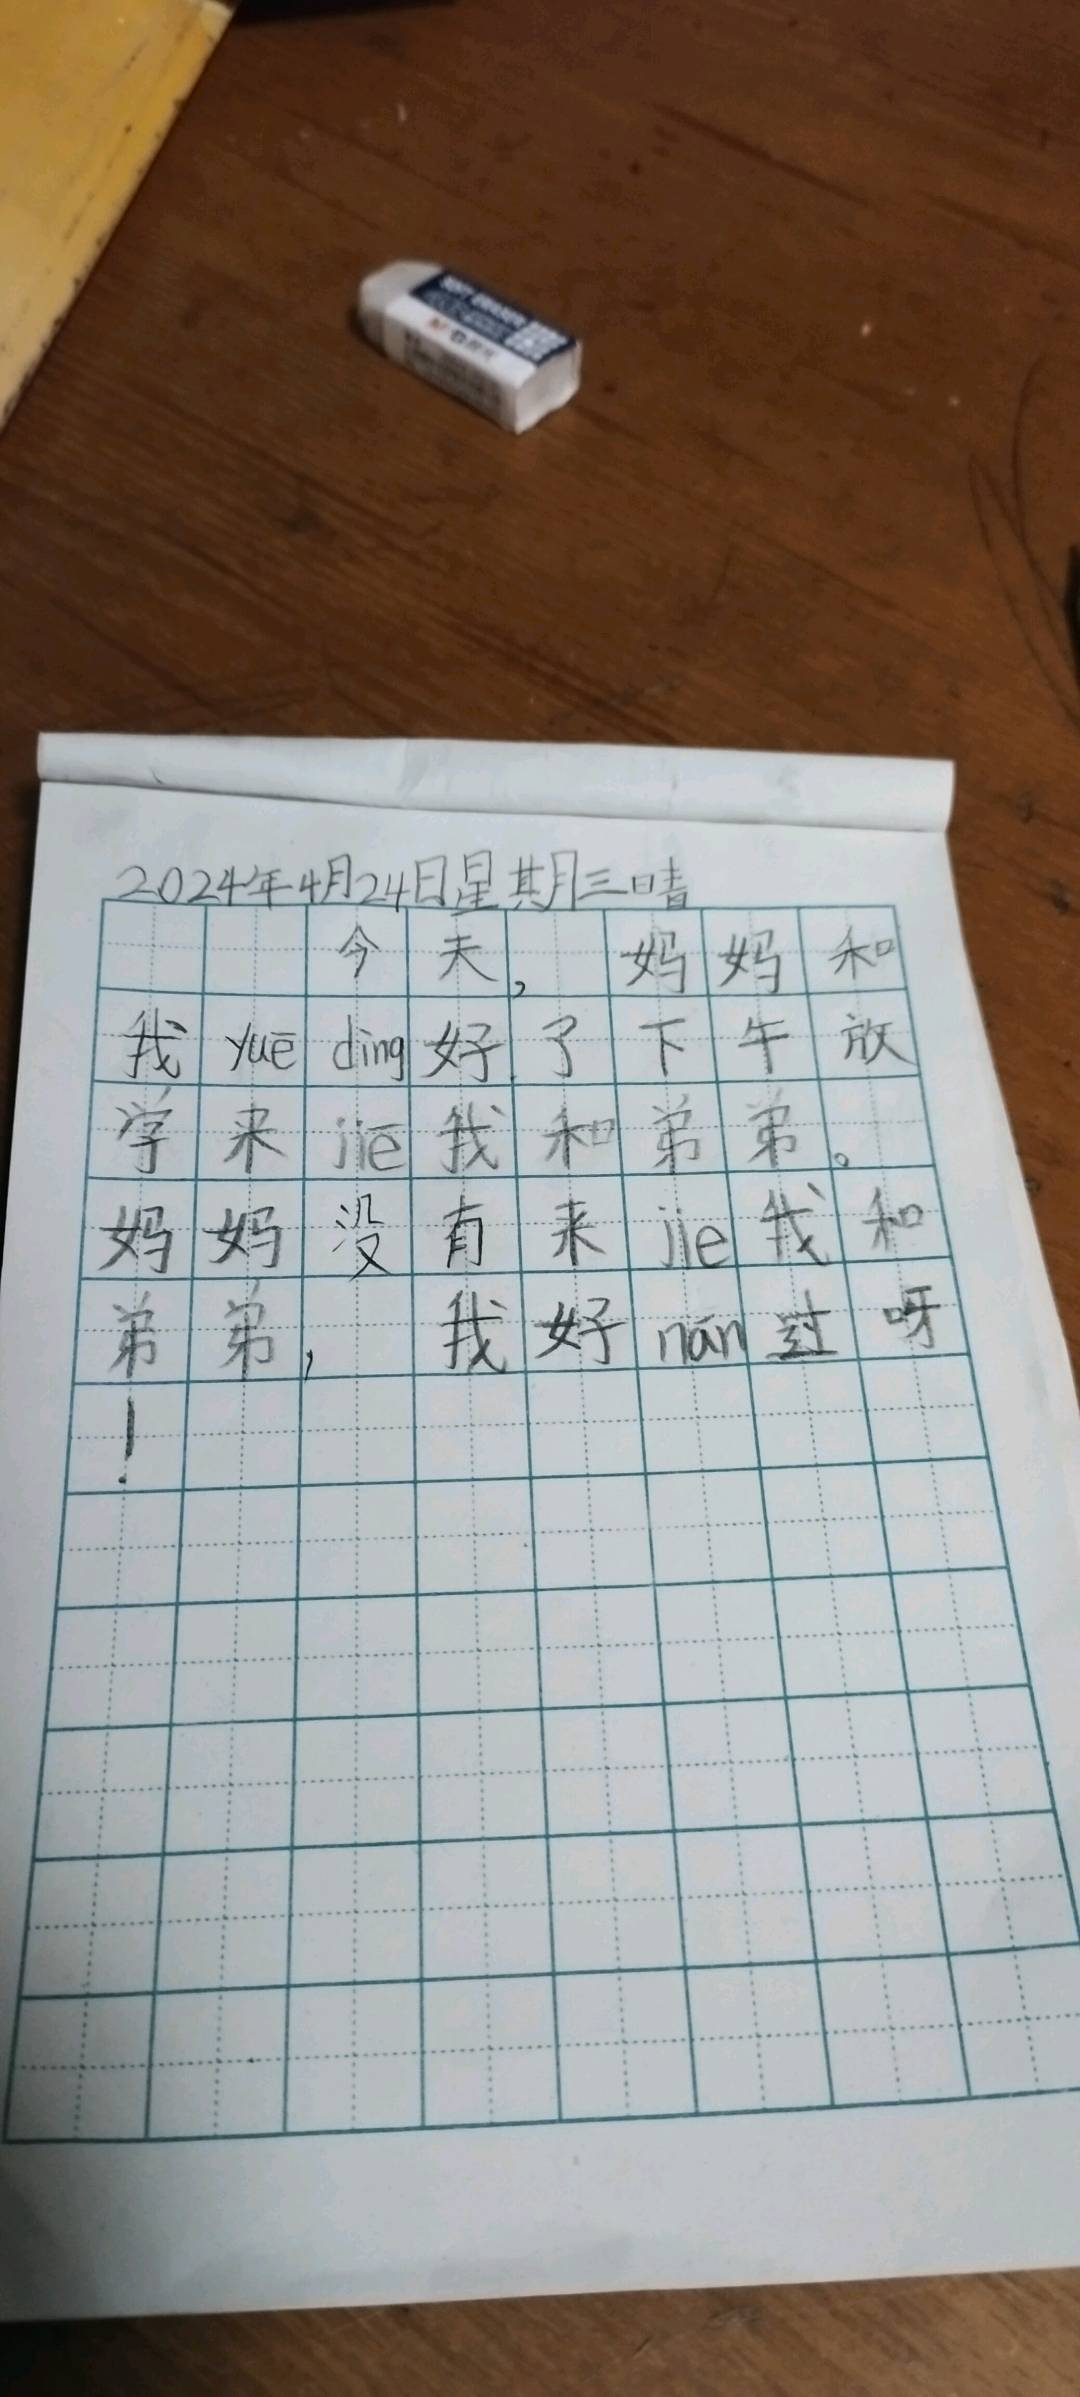 2024年4月24日星期三晴
今天，妈妈和
我yuē dìng好了下午放
学来jiē我和弟弟。
妈妈没有来jie我和
弟弟，我好nán过呀
！